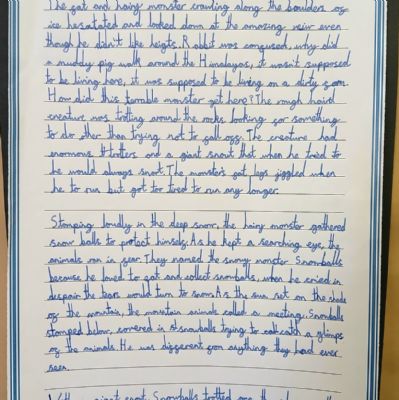 The fat and hairy monster crawling along the boulders of
ice hesatated and looked down at the amazing veiw even
though he didn't like heigts. Rabbit was confused, why did
a muddy pig walk around the Himalayas, it wasn't supposed
to be living here, it was supposed to be living on a dirty farm.
How did this terrible monster get here? The rough haird
creature was trotting around the rocks looking for something
to do other than trying not to fall off. The creature had
enormous trotters and a giant snout that when he tried to
he would always snort. The monster's fat legs jiggled when
he to run but got tor tired to run any longer.
Stomping loudly in the deep snow, the hairy monster gathered
snow balls to protect himself. As he kept a searching eye, the
animals ran in fear. They named the snowy monster Snowballs
because he loved to eat and collect snowballs, when he cried in
despair the tears would turn to snow. As the sun set on the shade
of the mountain, the mountain animals called a meeting. Snowballs
stomped below, covered in snowballs trying to catch a glimps
of the animals. He was different from anything they had ever
seen.
giant snout, Snowballs trotted